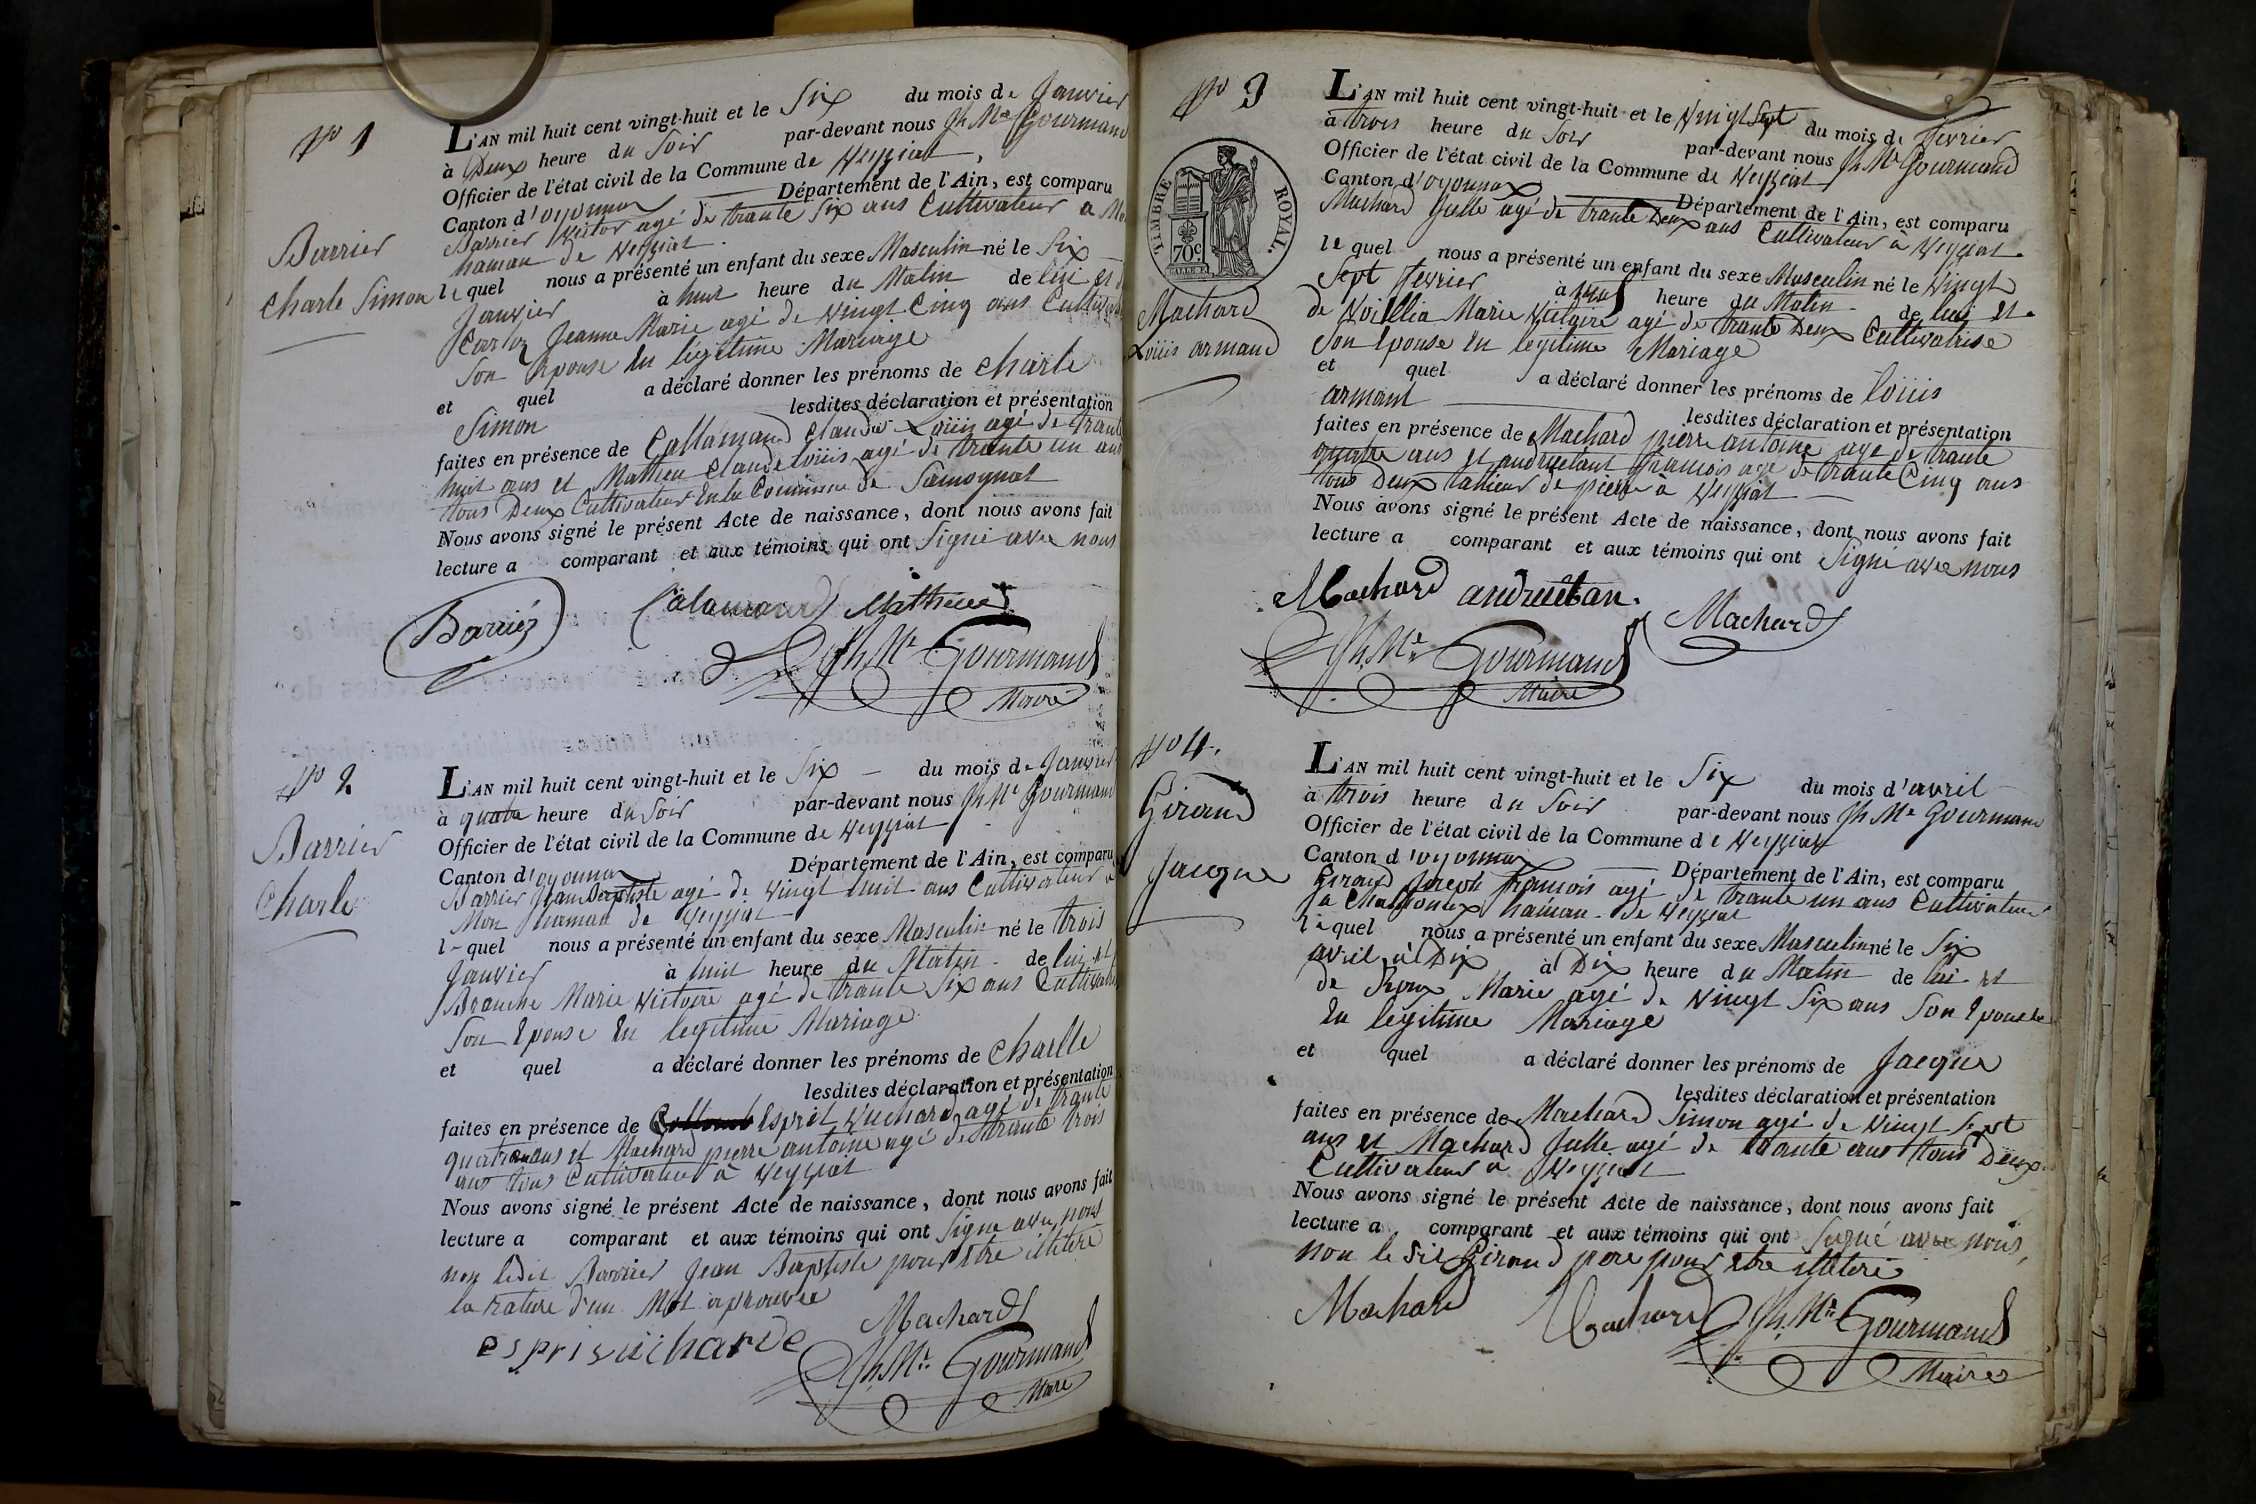 No 1
Barrier
Charle Simon
L'AN mil huit cent vingt-huit et le Six du mois de Janvier
à Deux heure du Soir par-devant nous Jh Me Gourmand
Officier de l'état civil de la Commune de Veyziat,
Canton d'oyonnax Département de l'Ain, est comparu
Barrier Victor agé de trante Six ans Cultivateur a
hamau de Veyziat.
le quel nous a présenté un enfant du sexe Masculin né le Six
Janvier à huit heure du Matin de lui et
Jeanne Marie agé de Vingt Cinq ans
Son Epouse En légitime Mariage
et quel a déclaré donner les prénoms de Charle
Simon lesdites déclaration et présentation
faites en présence de Callamand Claude Louis agé de trante
huit ans et Mathieu Claude Louis agé de trante un ans
tous Deux Cultivateur En la Commune de Samognat
Nous avons signé le présent Acte de naissance, dont nous avons fait
lecture a comparant et aux témoins qui ont Signé avec nous
Calamand Mathieu
Jh Me Gourmand
Maire
No 2
Barrier
Charle
L'AN mil huit cent vingt-huit et le Six du mois de Janvier
à quatre heure du Soir par-devant nous Jh Me Gourmand
Officier de l'état civil de la Commune de Veyziat
Canton d'oyonnax Département de l'Ain, est comparu
Barrier Jean Baptiste agé de Vingt huit ans Cultivateur à
Mon hamau de Veyziat
le quel nous a présenté un enfant du sexe Masculin né le trois
Janvier à huit heure du Matin de lui et
Marie Victoire agé de trante Six ans
Son Epouse En legitime Mariage
et quel a déclaré donner les prénoms de Charlle
lesdites déclaration et présentation
faites en présence de Esprit Vuchard agé de trante
quatre ans et Machard pierre antoine agé de trante trois
ans tous Cultivateur à Veyziat
Nous avons signé le présent Acte de naissance, dont nous avons fait
lecture a comparant et aux témoins qui ont Signe avec nous
non ledit Barrier Jean Baptiste pour être illiteré
la rature d'un Mot aprouvée
Machard
Jh Me Gourmand
Mare
No 3
TIMBRE ROYAL.
70c
Machard
Louis armand
L'AN mil huit cent vingt-huit et le Vingt Sept du mois de Fevrier
à trois heure du Soir par-devant nous Jh Me Gourmand
Officier de l'état civil de la Commune de Veyziat
Canton d'oyonnax Département de l'Ain, est comparu
Machard Julle agé de trante Deux ans Cultivateur à Veyziat.
le quel nous a présenté un enfant du sexe Masculin né le Vingt
Sept fevrier à heure du Matin de lui et
de Marie agé de trante Deux Cultivatrise
Son Epouse En legitime Mariage
et quel a déclaré donner les prénoms de Louis
armant lesdites déclaration et présentation
faites en présence de Machard pierre antoine agé de trante
quatre ans et andruétant francois agé de trante Cinq ans
tous Deux de pierre à Veyziat
Nous avons signé le présent Acte de naissance, dont nous avons fait
lecture a comparant et aux témoins qui ont Signé avec nous
Machard andruétan. Machard
Jh Me Gourmand
Maire
No 4.
Giraud
Jacque
L'AN mil huit cent vingt-huit et le Six du mois d'avril
à trois heure du Soir par-devant nous Jh Me Gourmand
Officier de l'état civil de la Commune de Veyziat
Canton d'oyonnax Département de l'Ain, est comparu
Giraud Joseph francois agé de trante un ans Cultivateur
à hamau de Veyziat
le quel nous a présenté un enfant du sexe Masculin né le Six
avril à Dix à Dix heure du Matin de lui et
de Marie agé de Vingt Six ans Son Epouse
En legitime Mariage
et quel a déclaré donner les prénoms de Jacque
lesdites déclaration et présentation
faites en présence de Machard Simon agé de Vingt Sept
ans et Machard Julle agé de trante ans tous Deux
Cultivateur à Veyziat
Nous avons signé le présent Acte de naissance, dont nous avons fait
lecture a comparant et aux témoins qui ont Signé avec nous,
non le Sit Giraud pere pour etre illiteré
Machard Machard Jh Me Gourmand
Maire